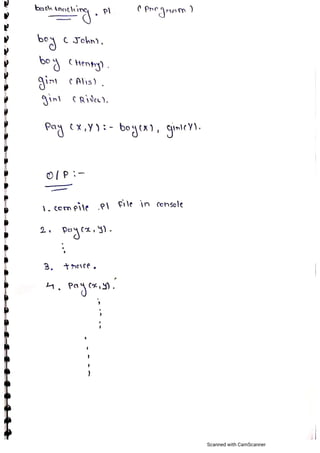 backtracking . pl ( Program )
boy ( John).
boy (Henry).
girl (Alis).
girl (River).
Pay (x,y) :- boy(x), girl(y).
O/P :-
1. compile .pl file in console
2. pay(x,y).
3. trace.
4. Pay(x,y).
Scanned with CamScanner